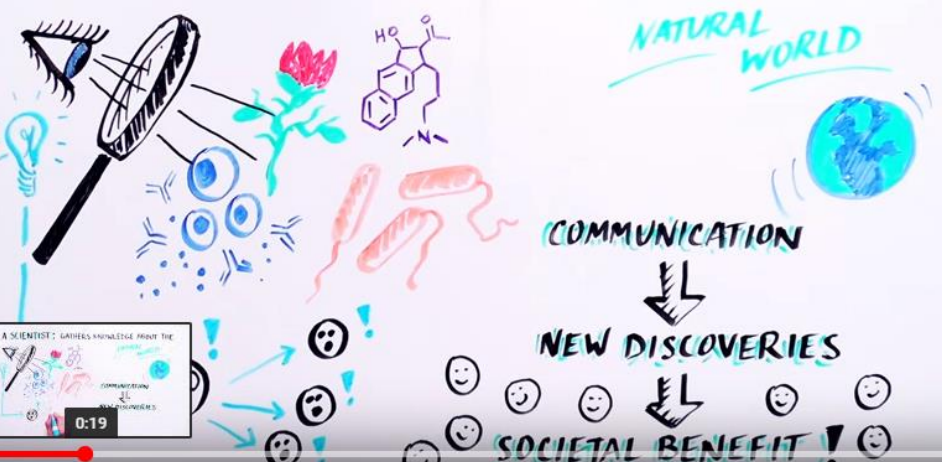 HO
O
N
NATURAL
WORLD
COMMUNICATION
NEW DISCOVERIES
SOCIETAL BENEFIT!
A SCIENTIST: GATHERS KNOWLEDGE ABOUT THE
COMMUNICATION
NEW DISCOVERIES
0:19